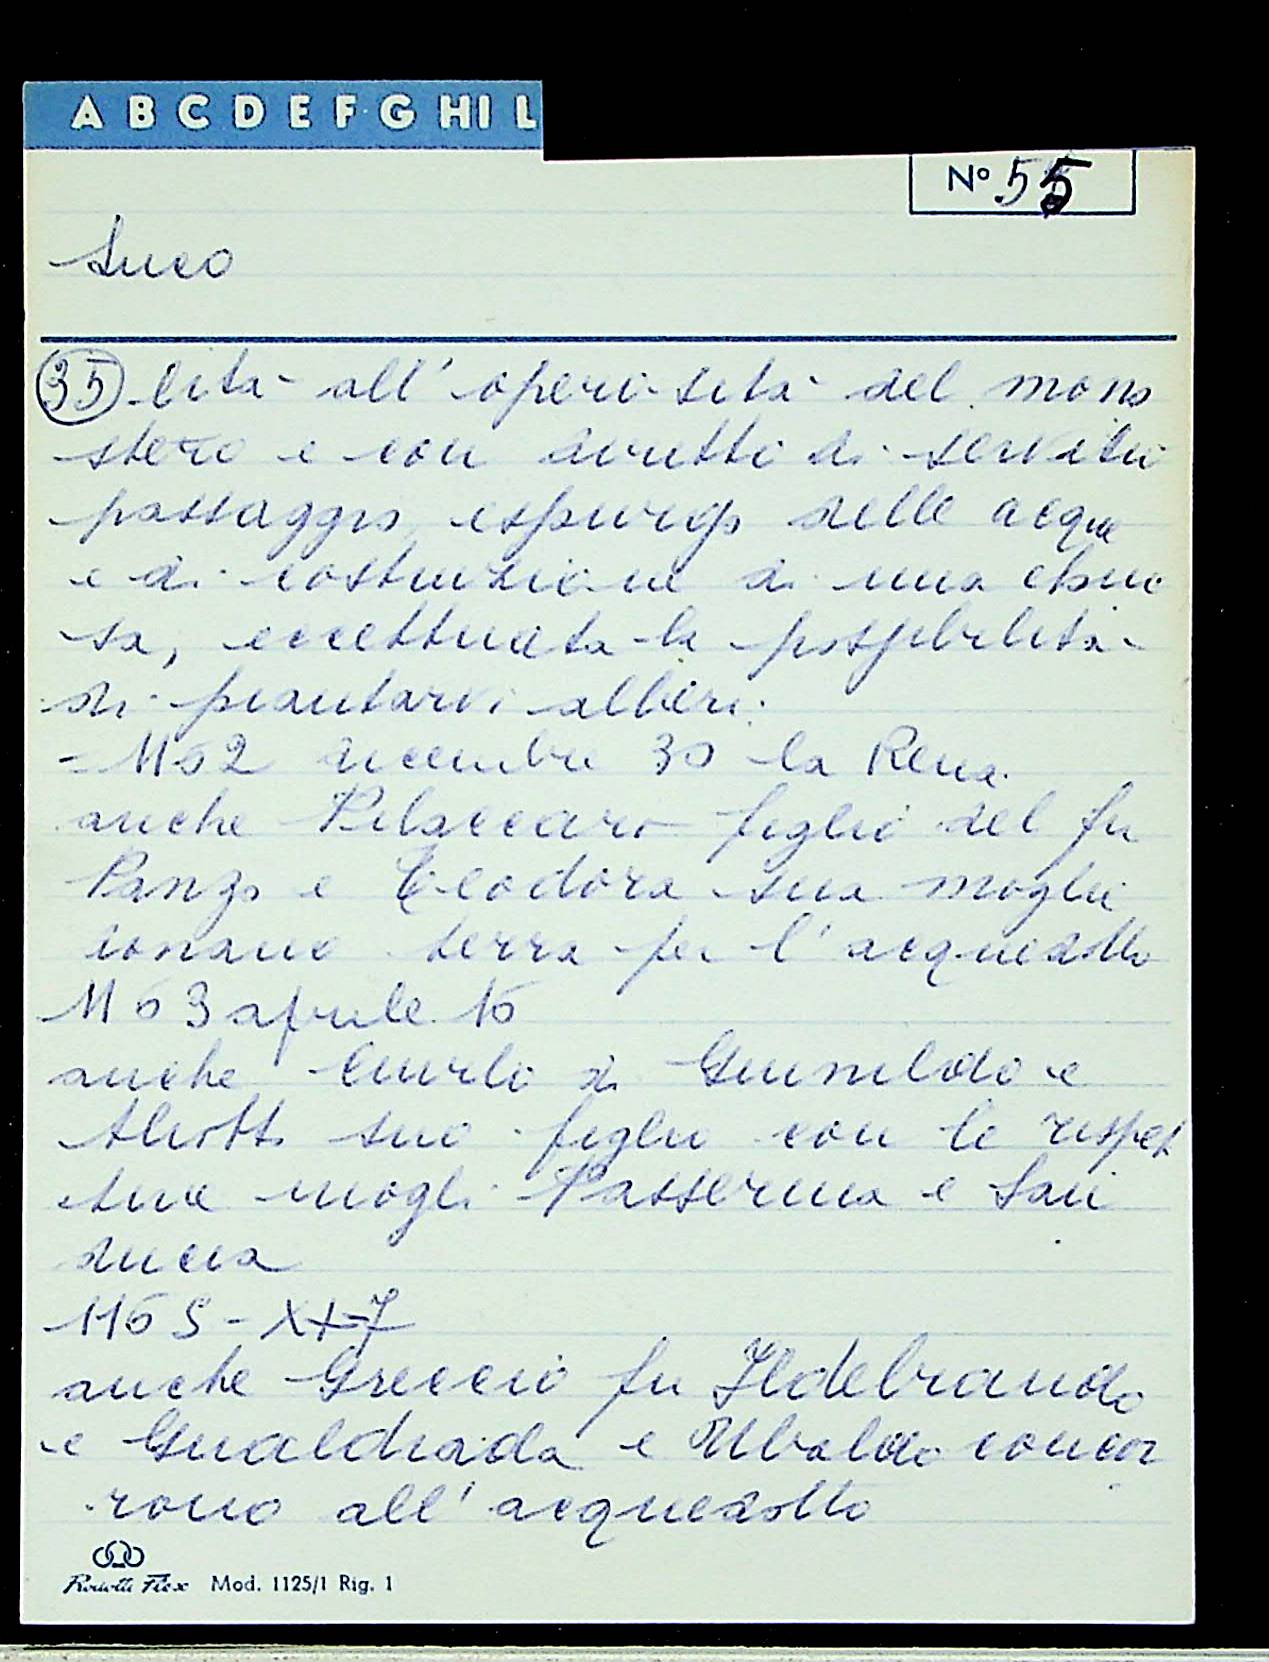 A B C D E F G HI L
Nº 55
Suco
35 lità all'operosità del mona
stero e con diritti di servitù
passaggio, espurgo delle acque
e di costruzione di una chiu
sa, eccettuata la possibilità
di piantarvi alberi.
= 1162 dicembre 30 la Rena
anche Pilaccaro figlio del fu
Panzo e Teodora sua moglie
donano terra per l'acquedotto
1163 aprile 16
anche di Guinildo e
Aliotti suo figlio con le rispet
tive mogli Passerina e San
ducia
1165 - XI-7
anche Greccio fu Ildebrando
e Gualdrada e Ubaldo concor
rono all'acquedotto
Mod. 1125/1 Rig. 1